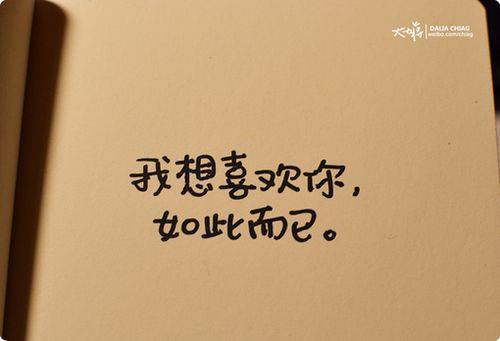 DAIJA CHIAG
weibo.com/chiag
我想喜欢你，
如此而已。